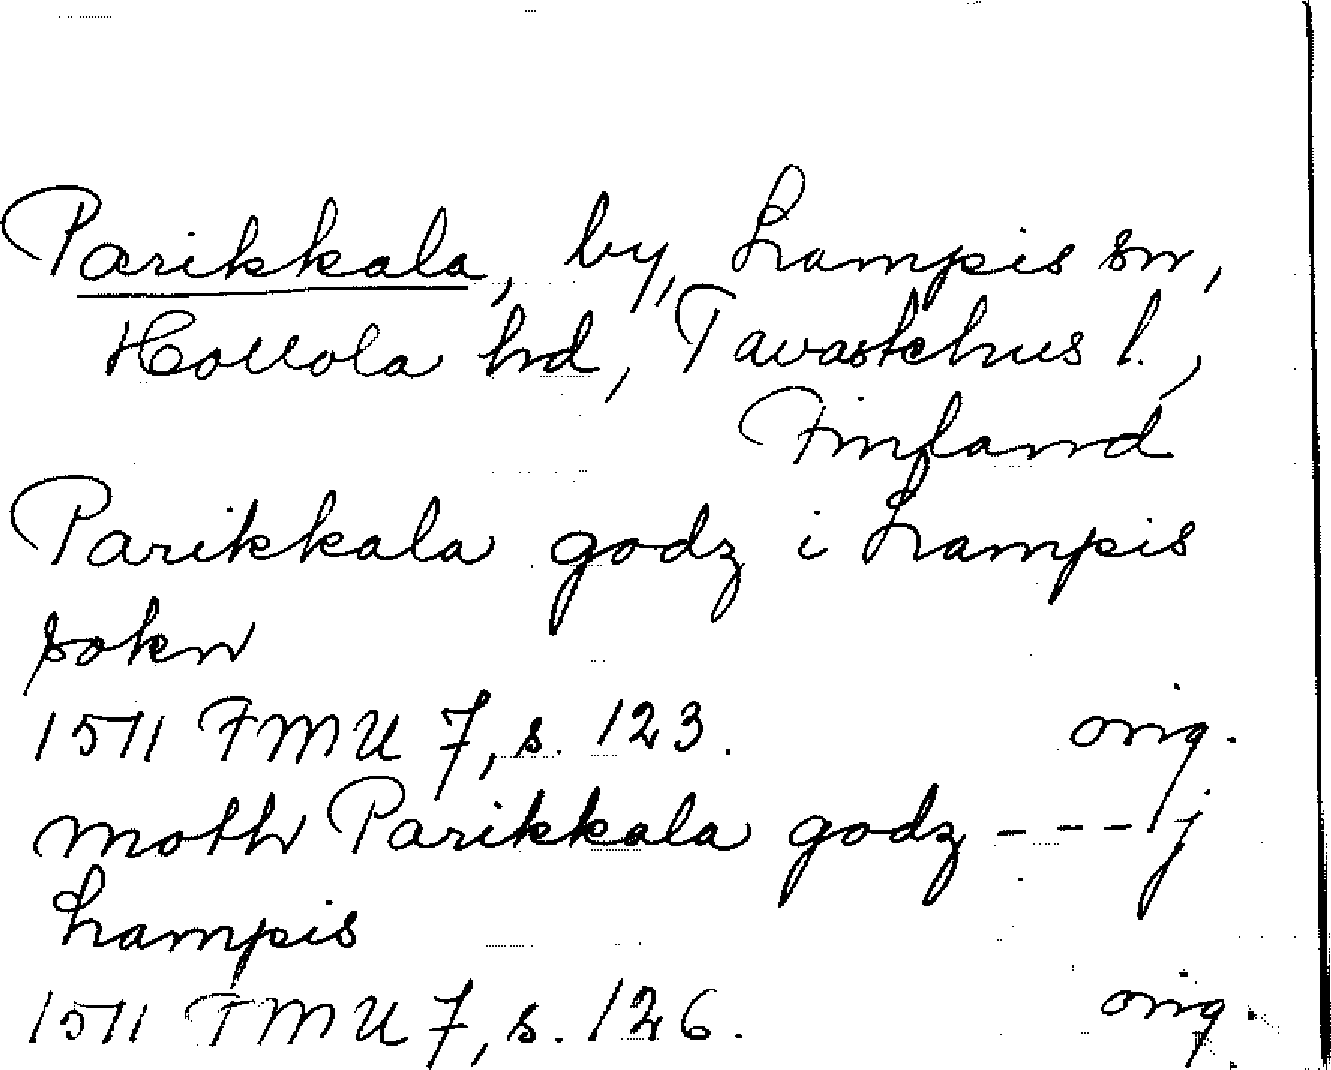 Parikkala, by, Lampis sn,
Hollola hd, Tavastehus l.,
Finland
Parikkala godz i Lampis
sokn
1511 FMU 7, s. 123. orig.
moth Parikkala godz --- j
Lampis
1511 FMU 7, s. 126. orig.